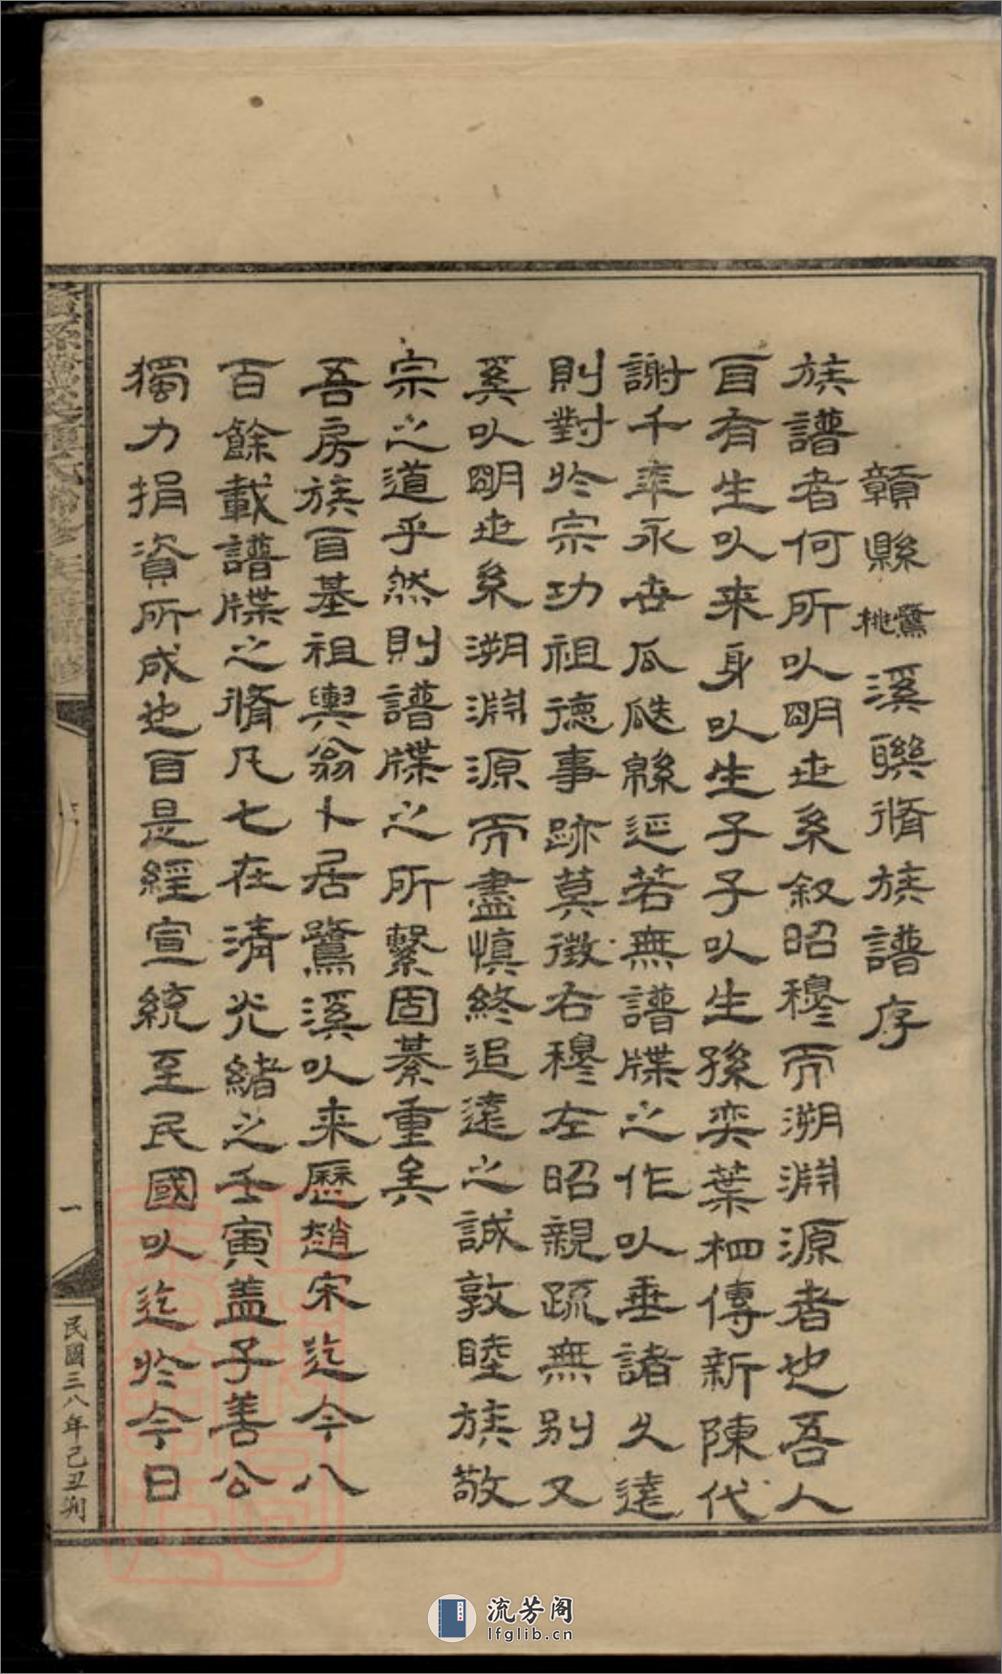 贛縣鷺桃溪聯脩族譜序
族譜者何所㕥明世系叙昭穆而溯淵源者也吾人
自有生㕥来身㕥生子子㕥生孫奕葉相傳新陳代
謝千年永世瓜瓞綿延若無譜牒之作㕥垂諸久遠
則對於宗功祖德事跡莫徵右穆左昭親疏無別又
奚㕥明世系溯淵源而盡慎終追遠之誠敦睦族敬
宗之道乎然則譜牒之所繫固綦重矣
吾房族自基祖輿翁卜居鷺溪㕥来歷趙宋迄今八
百餘載譜牒之脩凡七在清光緒之壬寅盖子善公
獨力捐資所成也自是經宣統至民國㕥迄於今日
一
民國三八年己丑刋
流芳阁
lfglib.cn